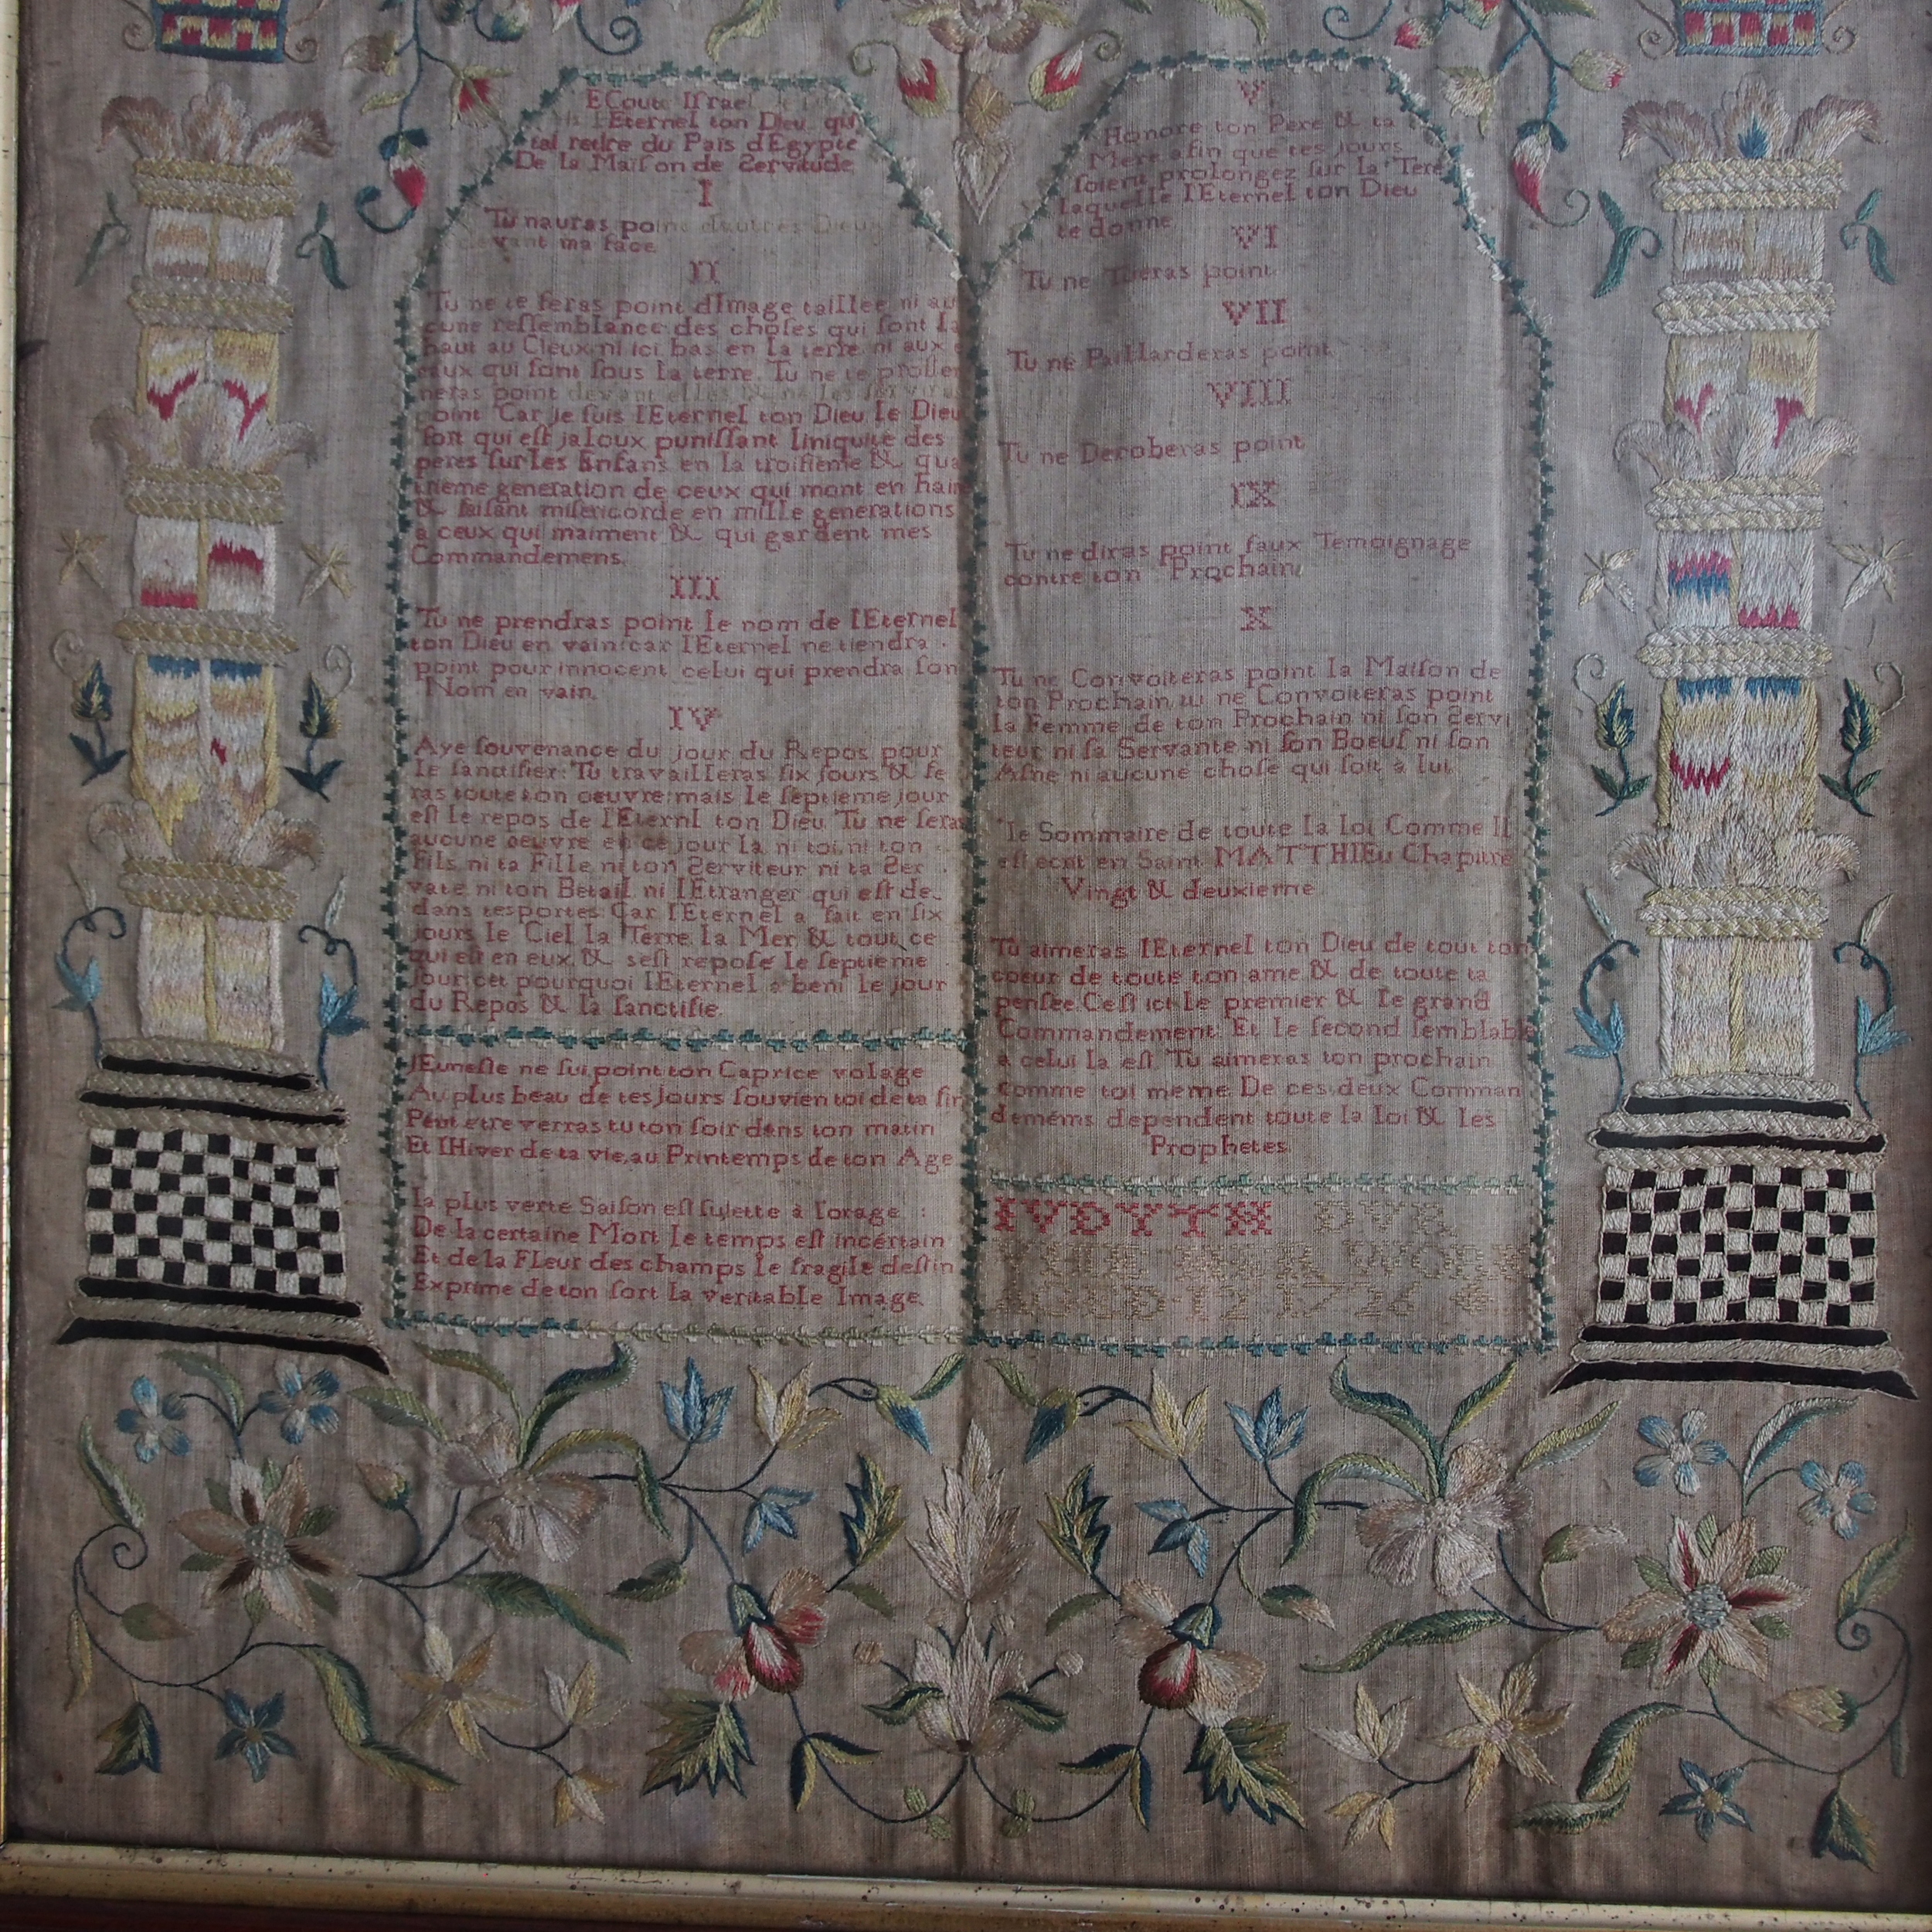 ECoute Iſrael Je
ſuis lEternel ton Dieu qui
tai retire du Païs dEgypte
De la Maiſon de Servitude
I
Tu nauras point dautres Dieux
devant ma face
II
Tu ne te feras point dImage taillee ni au
cune reſſemblance des choſes qui ſont la
haut au Cieux ni ici bas en la terre ni aux
eaux qui ſont ſous la terre. Tu ne te proſter
neras point devant elles & ne les ſerviras
point Car Je ſuis lEternel ton Dieu le Dieu
fort qui eſt jaloux puniſſant liniquite des
peres ſur les Enfans en la troiſieme & qua
trieme generation de ceux qui mont en hain
& faiſant miſericorde en mille generations
a ceux qui maiment & qui gardent mes
Commandemens.
III
Tu ne prendras point le nom de lEternel
ton Dieu en vain: car lEternel ne tiendra
point pour innocent celui qui prendra ſon
Nom en vain.
IV
Aye ſouvenance du jour du Repos pour
le ſanctifier: Tu travailleras ſix jours & fe
ras toute ton oeuvre: mais le ſeptieme jour
eſt le repos de lEternl ton Dieu Tu ne feras
aucune oeuvre en ce jour la ni toi ni ton
Fils ni ta Fille ni ton Serviteur ni ta Ser
vate ni ton Betail ni lEtranger qui eſt de
dans tes portes: Car lEternel a fait en ſix
jours le Ciel la Terre la Mer & tout ce
qui eſt en eux & seſt repoſe le ſeptieme
Jour: cet pourquoi lEternel a beni le jour
du Repos & la ſanctifie.
JEuneſſe ne ſui point ton Caprice volage
Au plus beau de tes Jours ſouvien toi de ta fin
Peut etre verras tu ton ſoir dans ton matin
Et lHiver de ta vie, au Printemps de ton Age
la plus verte Saiſon eſt ſujette à lorage :
De la certaine Mort le temps eſt incertain
Et de la Fleur des champs le fragile deſtin
Exprime de ton ſort la veritable Image.
V
Honore ton Pere & ta
Mere afin que tes jours
ſoient prolongez ſur la Tere
laquelle lEternel ton Dieu
te donne
VI
Tu ne Tueras point
VII
Tu ne Paillarderas point
VIII
Tu ne Deroberas point
IX
Tu ne diras point faux Temoignage
contre ton Prochain
X
Tu ne Convoiteras point la Maiſon de
ton Prochain, tu ne Convoiteras point
la Femme de ton Prochain ni ſon Servi
teur ni ſa Servante ni ſon Boeuf ni ſon
Aſne ni aucune choſe qui ſoit a lui
le Sommaire de toute la loi Comme Il
eſt ecrit en Saint MATTHIEu Chapitre
Vingt & deuxieme
Tu aimeras lEternel ton Dieu de tout ton
coeur de toute ton ame & de toute ta
penſee Ceſt ici le premier & le grand
Commandement Et le ſecond ſemblable
a celui la eſt Tu aimeras ton prochain
comme toi meme De ces deux Comman
demems dependent toute la loi & les
Prophetes
IVDYTH DVR
HER WORK
AGED 12 1726